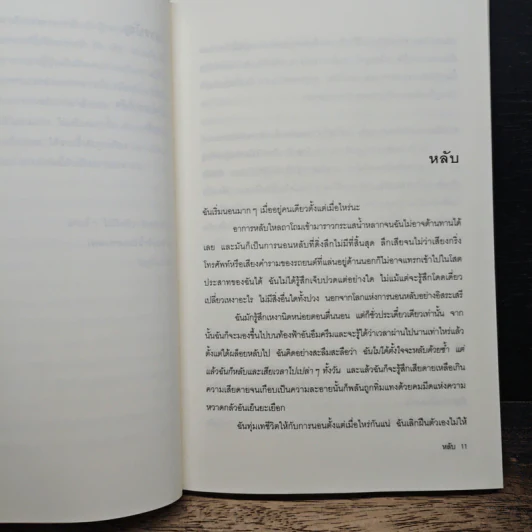 หลับ
ฉันเริ่มนอนมาก ๆ เมื่ออยู่คนเดียวตั้งแต่เมื่อไหร่นะ
อาการหลับไหลถาโถมเข้ามาราวกระแสน้ำหลากจนฉันไม่อาจต้านทานได้
เลย และมันก็เป็นการนอนหลับที่ดิ่งลึกไม่มีที่สิ้นสุด ลึกเสียจนไม่ว่าเสียงกริ่ง
โทรศัพท์หรือเสียงคำรามของรถยนต์ที่แล่นอยู่ด้านนอกก็ไม่อาจแทรกเข้าไปในโสต
ประสาทของฉันได้ ฉันไม่ได้รู้สึกเจ็บปวดแต่อย่างใด ไม่แม้แต่จะรู้สึกโดดเดี่ยว
เปลี่ยวเหงาอะไร ไม่มีสิ่งอื่นใดทั้งปวง นอกจากโลกแห่งการนอนหลับอย่างอิสระเสรี
ฉันมักรู้สึกเหงานิดหน่อยตอนตื่นนอน แต่ก็ชั่วประเดี๋ยวเดียวเท่านั้น จาก
นั้นฉันก็จะมองขึ้นไปบนท้องฟ้าอันอึมครึมและจะรู้ได้ว่าเวลาผ่านไปนานเท่าไหร่แล้ว
ตั้งแต่ได้ผล็อยหลับไป ฉันคิดอย่างสะลึมสะลือว่า ฉันไม่ได้ตั้งใจจะหลับด้วยซ้ำ แต่
แล้วฉันก็หลับและเสียเวลาไปเปล่า ๆ ทั้งวัน และแล้วฉันก็จะรู้สึกเสียดายเหลือเกิน
ความเสียดายจนเกือบเป็นความละอายนั้นก็พลันถูกทิ่มแทงด้วยคมมีดแห่งความ
หวาดกลัวอันเย็นยะเยือก
ฉันทุ่มเทชีวิตให้กับการนอนตั้งแต่เมื่อไหร่กันแน่ ฉันเลิกฝืนตัวเองไม่ให้
หลับ 11